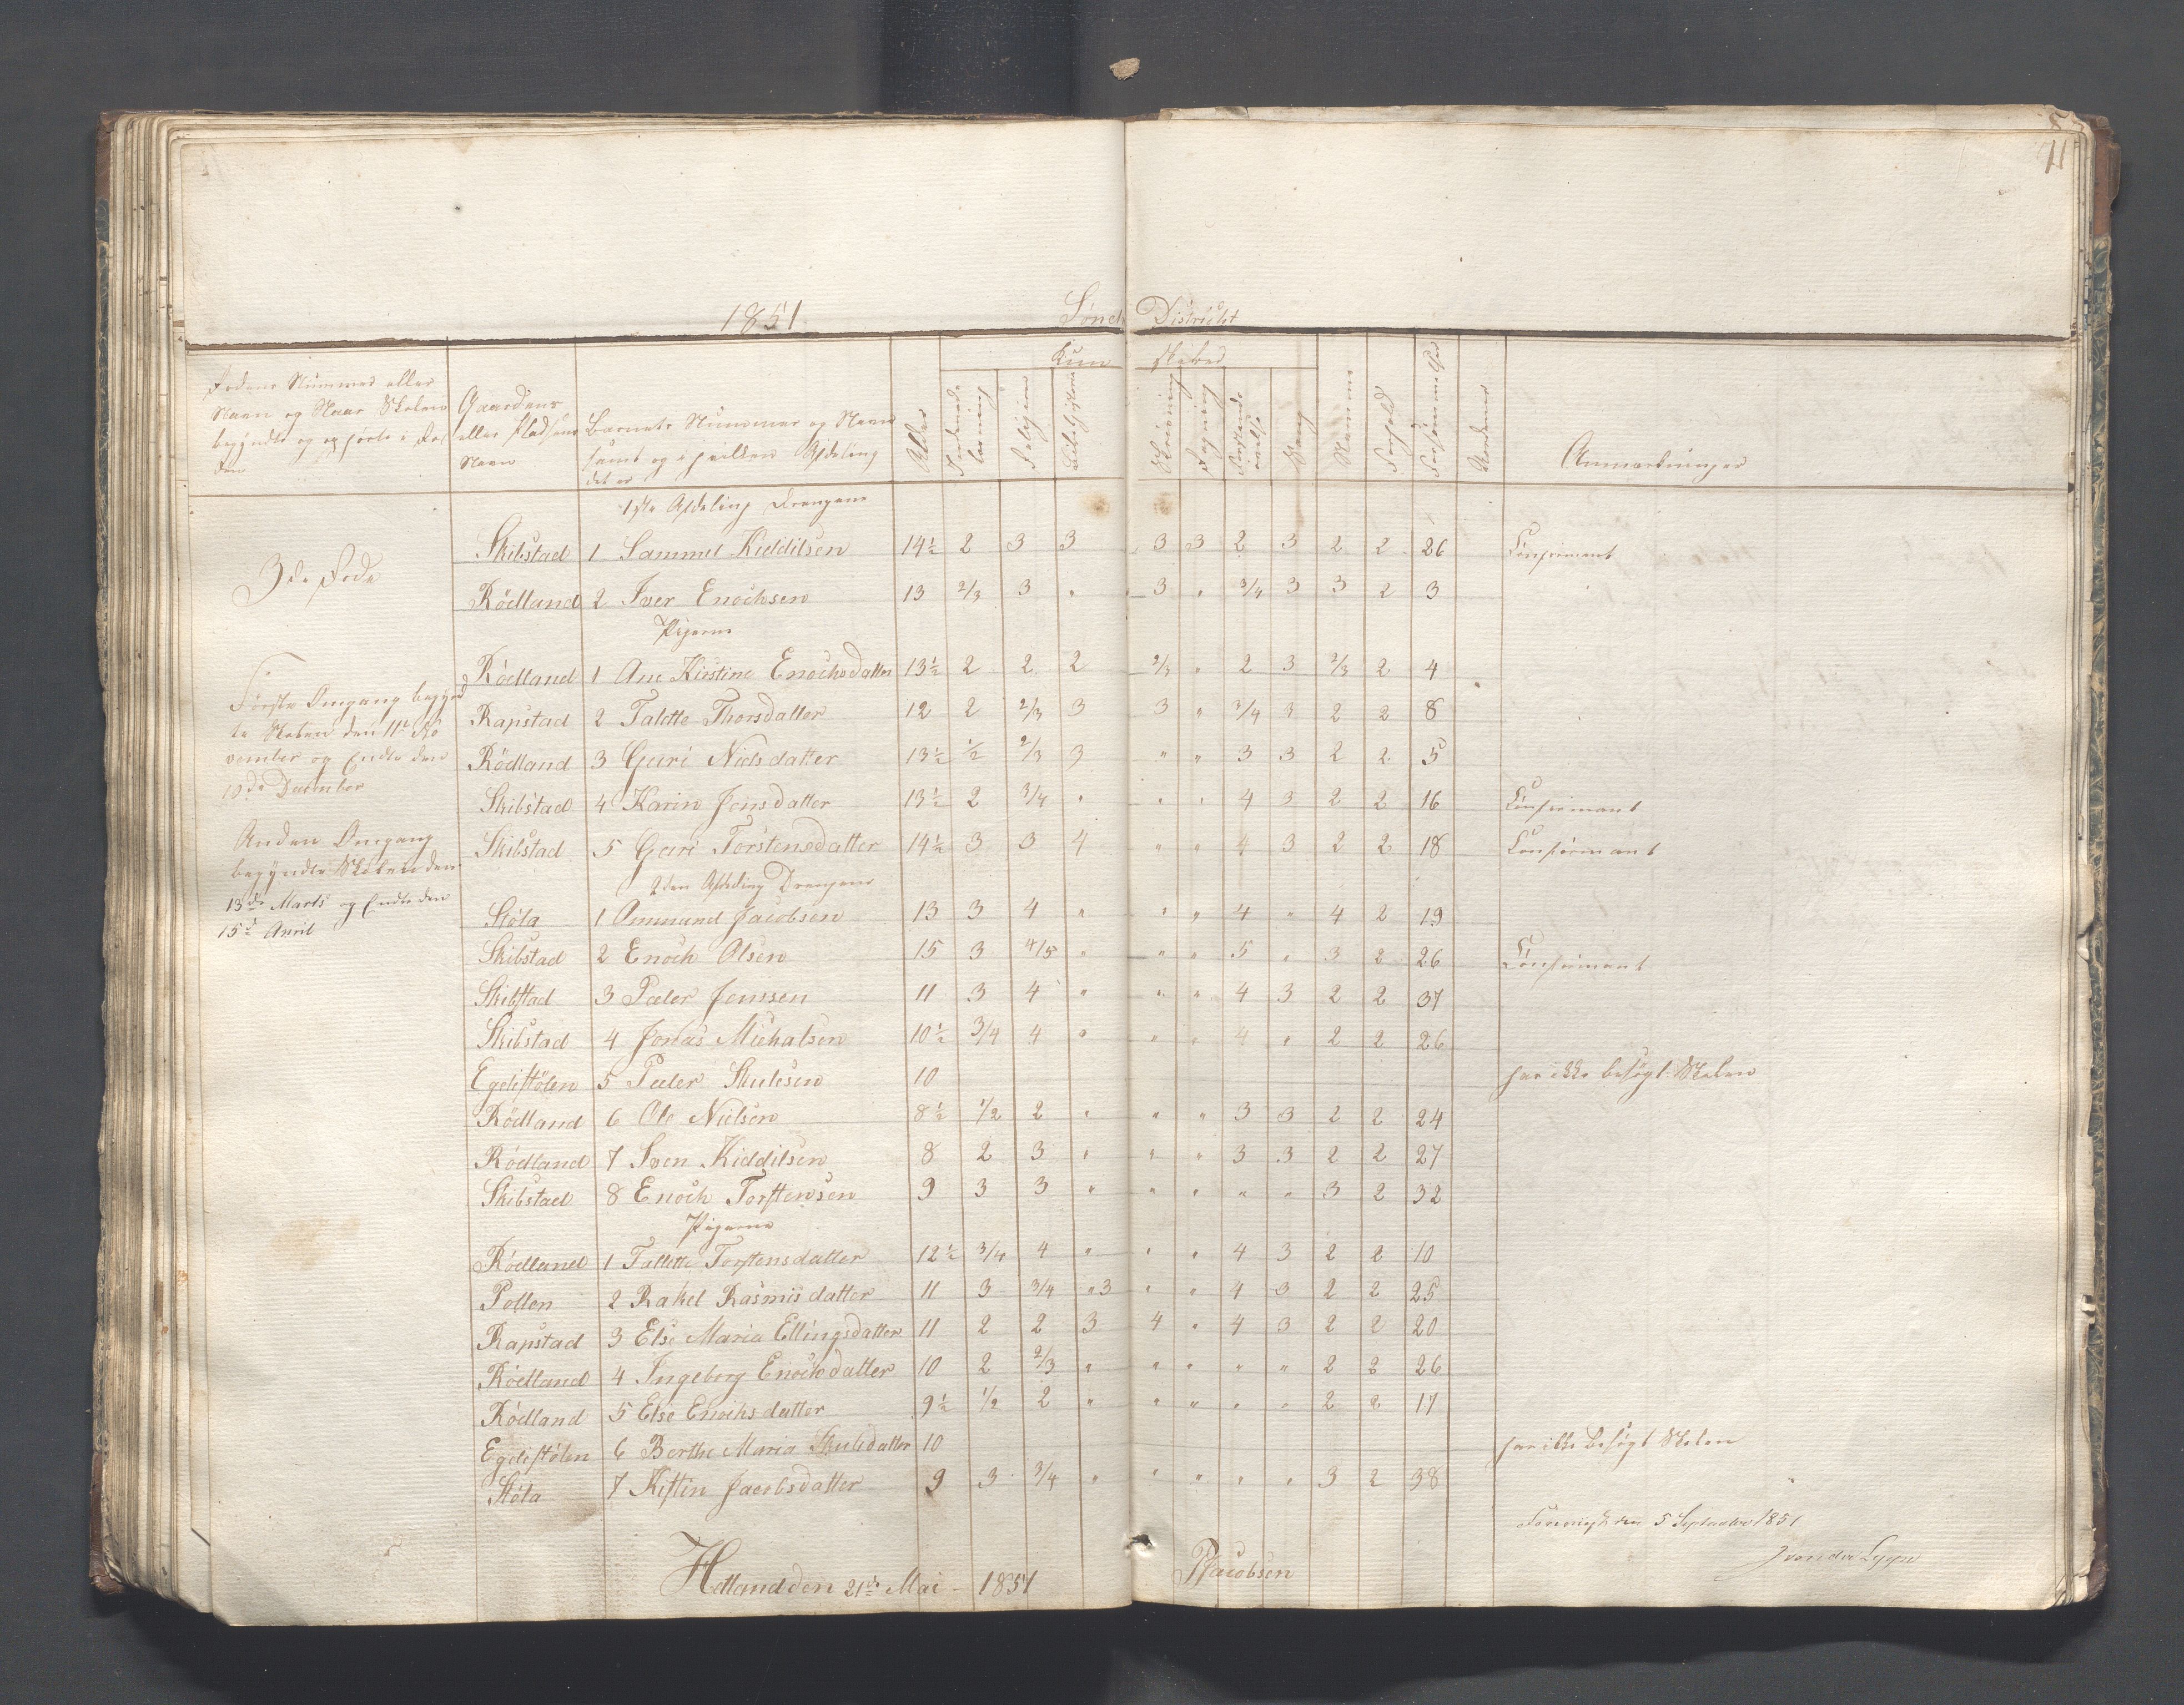 11
1851 Søndre District
Kundskaber
Rodens Nummer eller
Navn og Naar Skolen
begyndte og ophørte i Ro
den
Gaardens
eller Pladsens
Navn
Barnets Nummer og Navn
samt og i hvilken Afdeling
det er
Alder
Indenads
læsning
Religion
Bibelhistorie
Skrivning
Regning
Forstands
øvelse
Sang
Nemme
Forhold
Forsømmelser
Anmærkninger
1ste Afdeling Drengene
3die Rode
Skibstad 1 Sammel Kidditsen 14½ 2 3 3 3 3 2 3 2 2 26 Confirmant
Rödland 2 Iver Enochsen 13 2/3 3 " 3 " 3/4 3 3 2 3
Pigerne
Rödland 1 Ane Kirstine Enochsdatter 13½ 2 2 2 2/3 " 2 3 2/3 2 4
Rapstad 2 Talette Thorsdatter 12 2 2/3 3 3 " 3/4 3 2 2 8
Rödland 3 Guri Nielsdatter 13½ 1/2 2/3 3 " " 3 3 2 2 5
Skibstad 4 Karin Jensdatter 13½ 2 3/4 " " " 4 3 2 2 16 Confirmant
Skibstad 5 Guri Torstensdatter 14½ 3 3 4 " " 4 3 2 2 18 Confirmant
Første Omgang begynd
te Skolen den 11te No
vember og Endte den
10de December
Anden Omgang
begyndte Skolen den
13de Marts og Endte den
15de April
2den Afdeling Drengene
Støla 1 Ommund Jacobsen 13 3 4 " " " 4 " 4 2 19
Skibstad 2 Enoch Olsen 15 3 4/5 " " " 5 " 3 2 26 Confirmant
Skibstad 3 Peder Jenssen 11 3 4 " " " 4 3 2 2 37
Skibstad 4 Jonas Michalsen 10½ 3/4 4 " " " 4 " 2 2 26
Egelistölen 5 Peder Skulesen 10 har ikke besøgt Skolen
Rödland 6 Ole Nielsen 8½ 1/2 2 " " " 3 3 2 2 24
Rödland 7 Sven Kidditsen 8 2 3 " " " 3 3 2 2 27
Skibstad 8 Enoch Torstensen 9 3 3 " " " " " 3 2 32
Pigerne
Rödland 1 Tallette Torstensdatter 12½ 3/4 4 " " " 4 3 2 2 10
Pollen 2 Rakel Rasmusdatter 11 3 3/4 "3 " " 4 3 2 2 25
Rapstad 3 Else Maria Ellingsdatter 11 2 2 3 4 " 4 3 2 2 20
Rödland 4 Ingeborg Enochsdatter 10 2 2/3 " " " " " 2 2 26
Rödland 5 Else Enochsdatter 9½ 1/2 2 " " " " " 2 2 17
Egelistölen 6 Berthe Maria Skulesdatter 10 har ikke besøgt Skolen
Støla 7 Kistin Jacobsdatter 9 3 3/4 " " " " " 3 2 38
Foreviist den 5 September 1851
J von der Lippe
Hetland den 21de Mai 1851 P Jacobsen